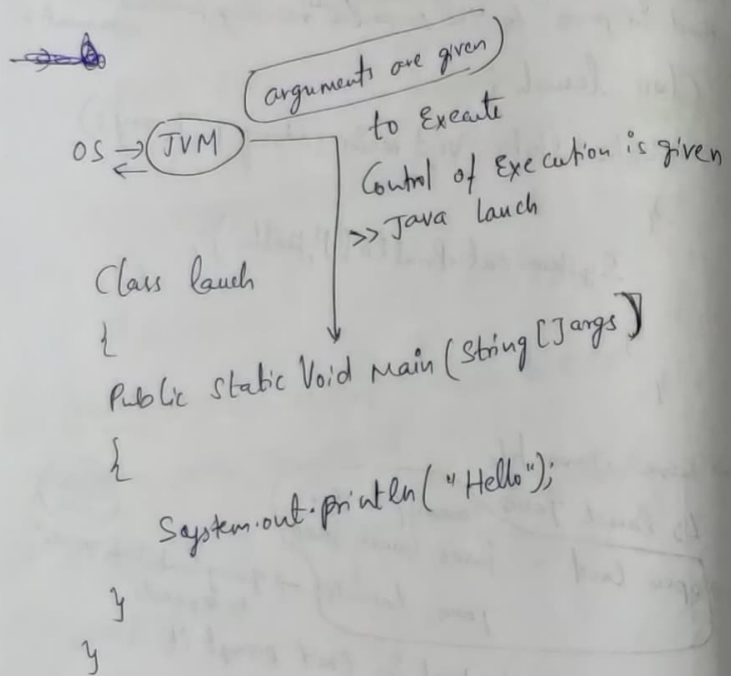 arguments are given
to Execute
OS → JVM
←
Control of Execution is given
>> Java lauch
Class lauch
{
Public static Void Main (String []args)
{
System.out.println("Hello");
}
}